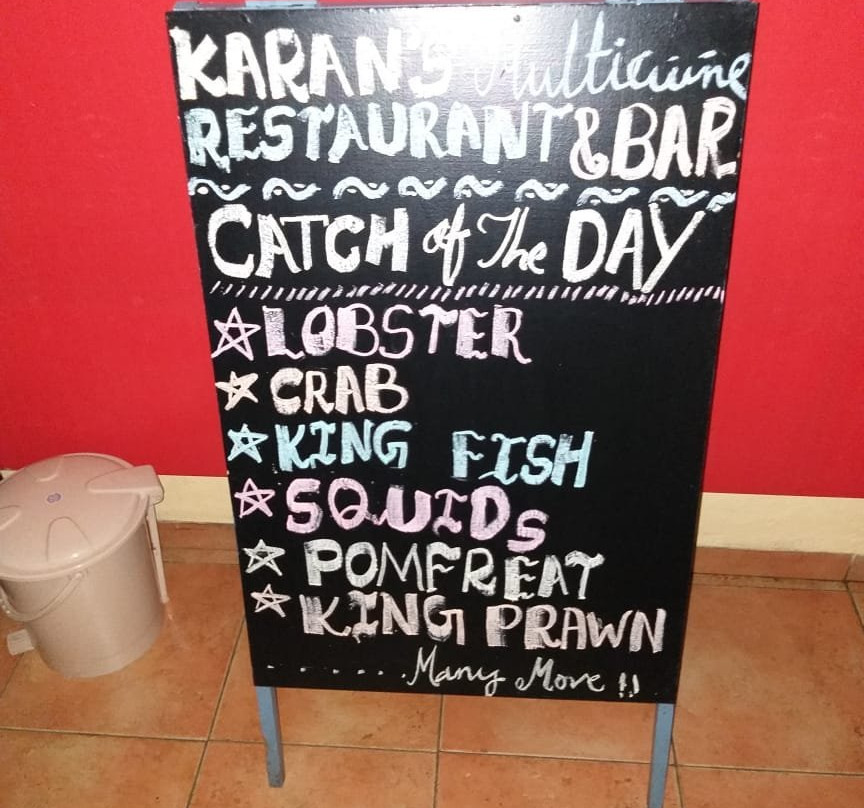 KARAN'S Multicuine
RESTAURANT & BAR
CATCH of The DAY
LOBSTER
CRAB
KING FISH
SQUIDS
POMFREAT
KING PRAWN
.......Many More !!